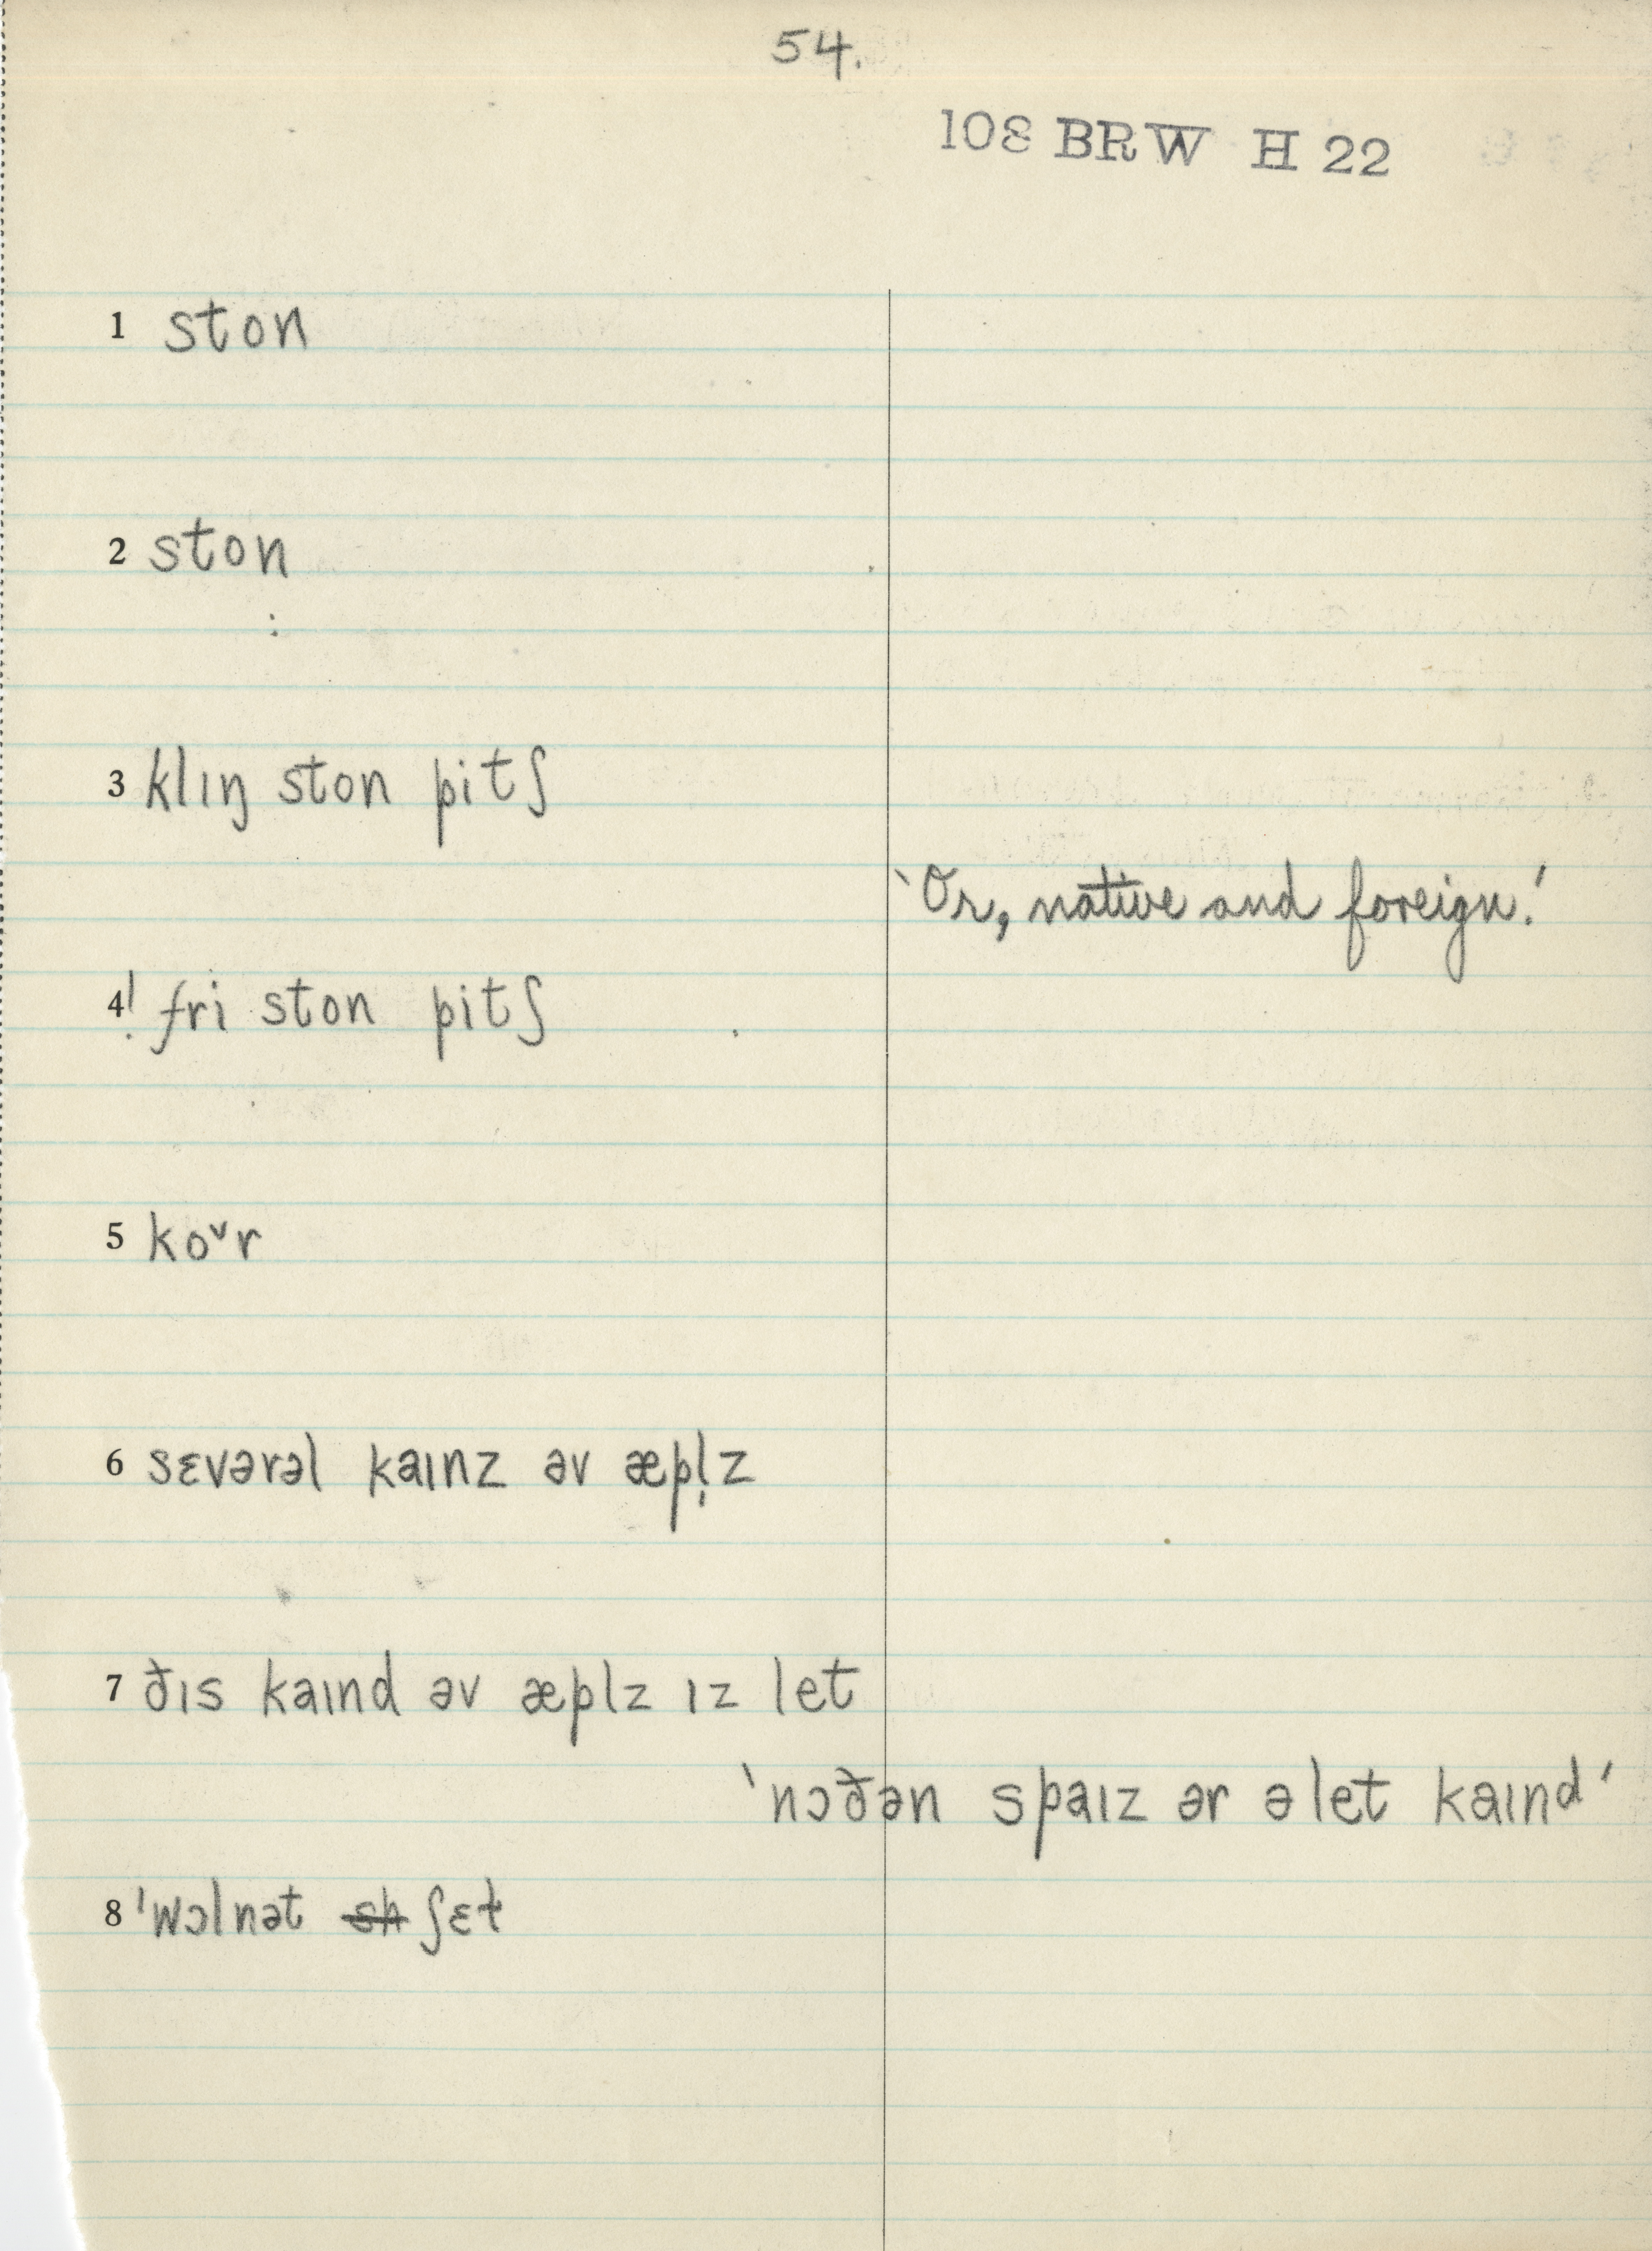 54.
108 BRW H 22
1 ston
2 ston
3 klɪŋ ston pitʃ
‵Or, native and foreign.′
4! fri ston pitʃ
5 ko˅r
6 sɛvərəl kaɪnz əv æpl̩z
7 ðɪs kaɪnd əv æplz ɪz let
‵nɔðən spaɪz ər ə let kaɪnd′
8 ˈwɔlnət sh ʃɛɫ